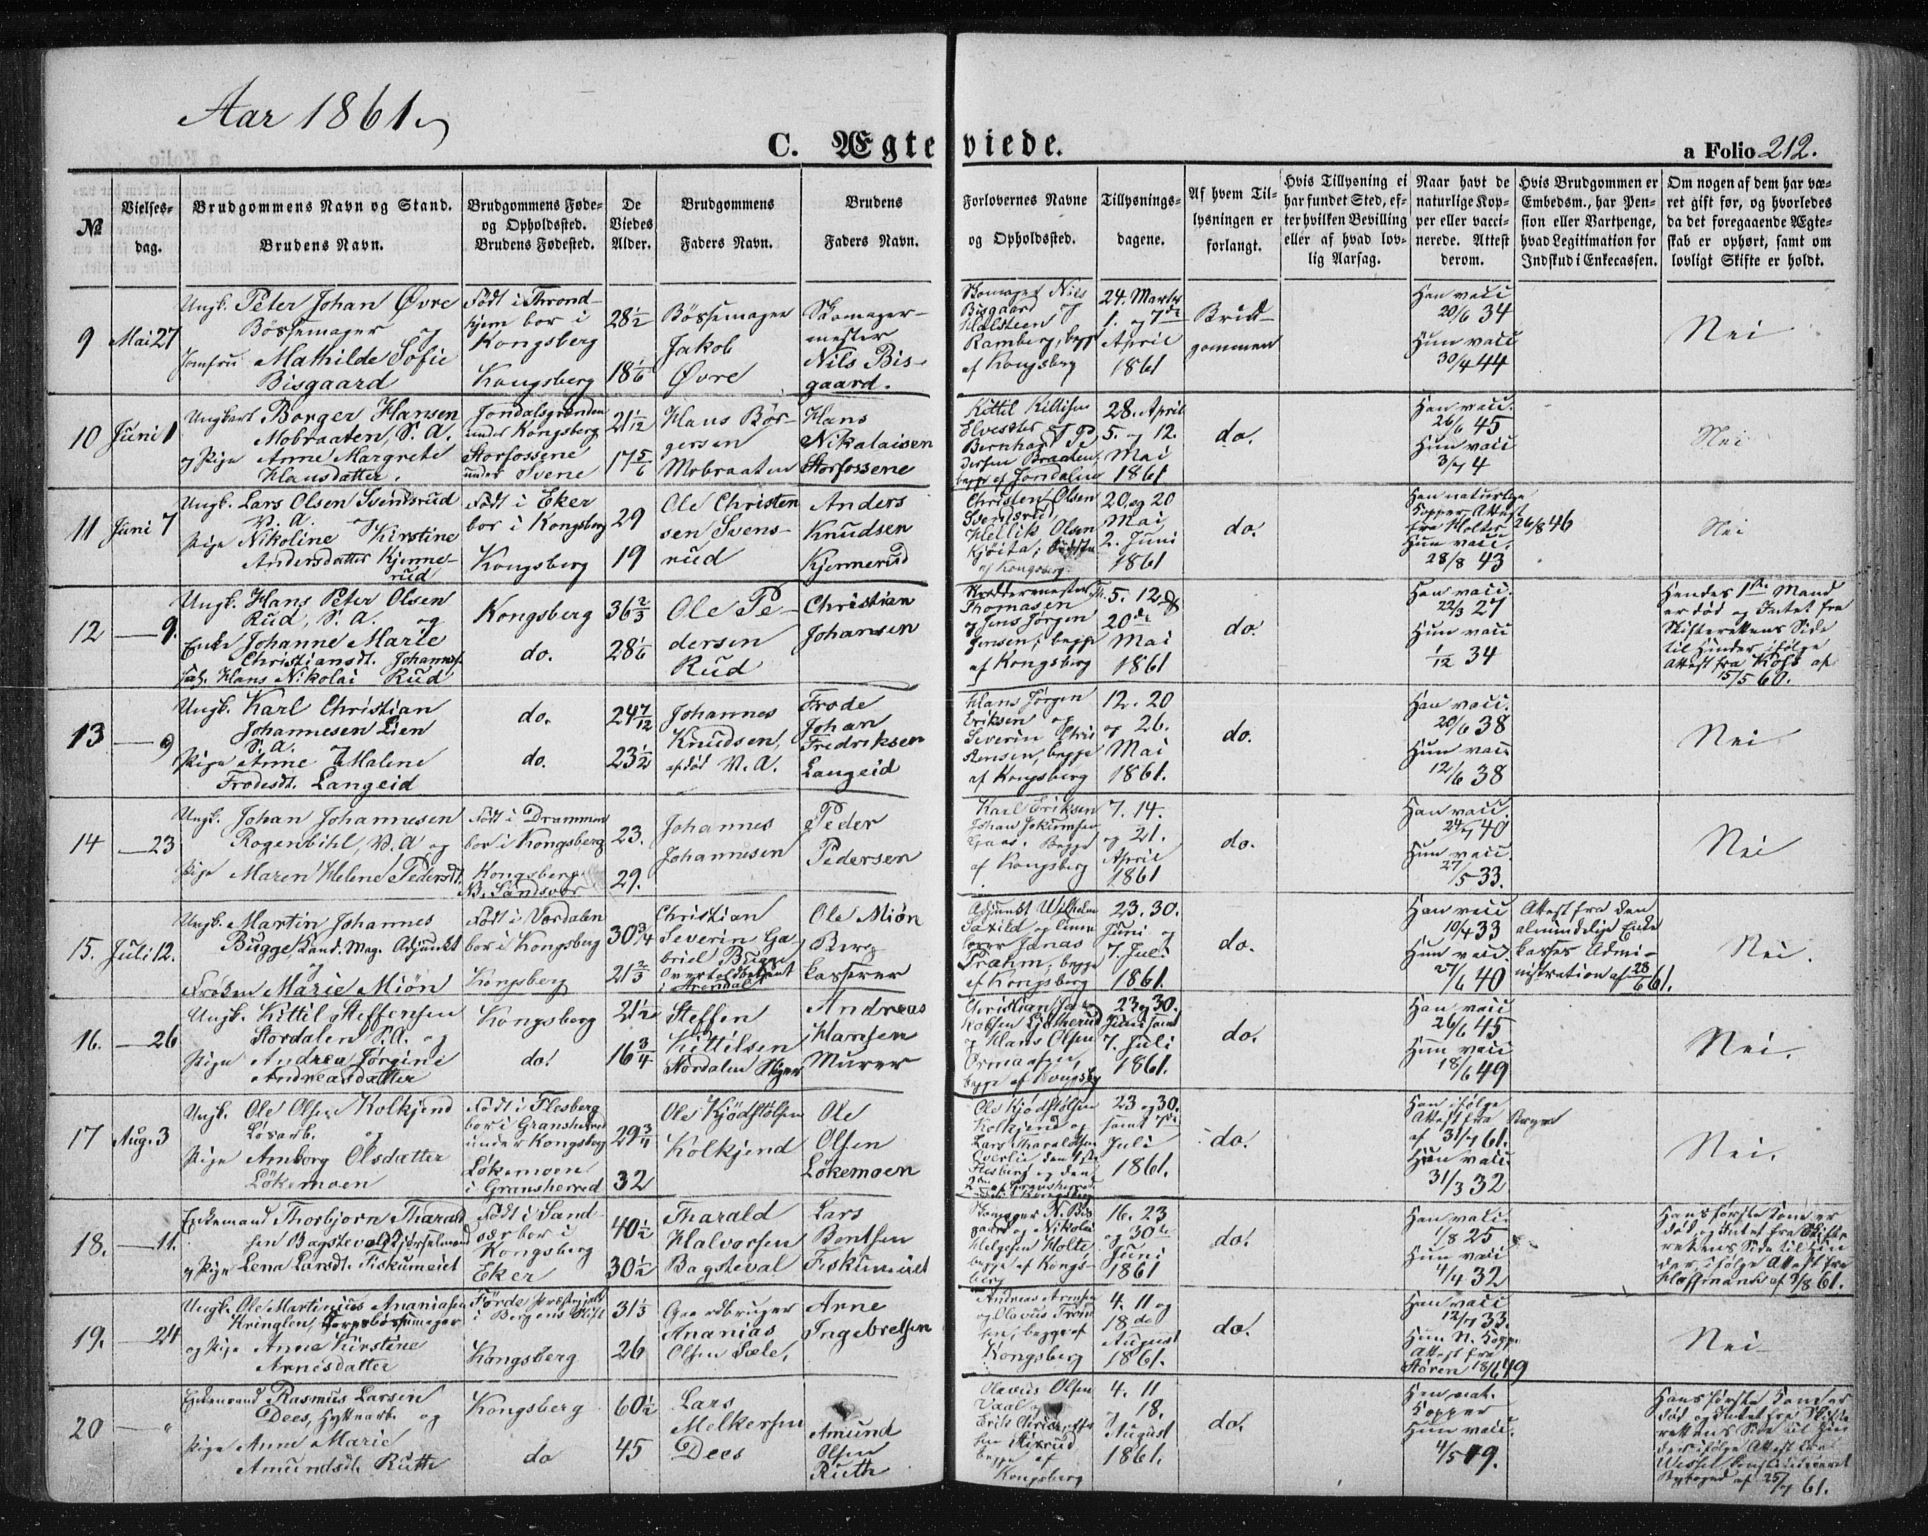 Aar 1861.
C. Ægteviede.
a Folio 212.
№
Vielses-
dag.
Brudgommens Navn og Stand.
Brudens Navn.
Brudgommens Føde-
og Opholdssted.
Brudens Fødested.
De
Viedes
Alder.
Brudgommens
Faders Navn.
Brudens
Faders Navn.
Forlovernes Navne
og Opholdssted.
Tillysnings-
dagene.
Af hvem Til-
lysningen er
forlangt.
Hvis Tillysning ei
har fundet Sted, ef-
ter hvilken Bevilling
eller af hvad lov-
lig Aarsag.
Naar havt de
naturlige Kop-
per eller vacci-
nerede. Attest
derom.
Hvis Brudgommen er
Embedsm., har Pen-
sion eller Vartpenge,
hvad Legitimation for
Indskud i Enkecassen.
Om nogen af dem har væ-
ret gift før, og hvorledes
da det foregaaende Ægte-
skab er ophørt, samt om
lovligt Skifte er holdt.
9
Mai 27
Ungk. Peter Johan Øvre
Bøssemager og
Jomfru Mathilde Sofie
Bisgaard
Født i Thrond-
hjem bor i
Kongsberg
Kongsberg
28 1/2
18 1/6
Bøssemager
Jakob
Øvre
Skomager-
mester
Nils Bis-
gaard.
Skomager Nils
Bisgaard og
Halsteen
Ramberg, begge
af Kongsberg
24. Marts
1. og 7de
April
1861
Brud-
gommen
Han vacc
20/6 34
Hun vacc
30/4 44
Nei
10
Juni 1
Ungkarl Borger Hansen
Mobraaten, S. A.
og Pige Anne Margrete
Hansdatter.
Jondalsgrenden
under Kongsberg
Storfossene
under Svene
21 1/12
17 5/6
Hans Bør-
gersen
Mobraaten
Hans
Nikolaisen
Storfossene
Kittil Killisen
Elvester og
Bernhard Pe
dersen Braaten,
begge af Jondalen
28. April
5. og 12.
Mai
1861
do.
Han vacc.
26/6 45
Hun vacc.
3/7 4
Nei
11
Juni 7
Ungk. Lars Olsen Svendsrud
og
Pige Nikoline Kirstine
Andersdatter Kjenne-
rud
Født i Eker
bor i Kongsberg
Kongsberg
29
19
Ole Christen
sen Svens-
rud
Anders
Knudsen
Kjennerud
Christen Olsen
Svendsrud,
Hellik Olsen
af Kongsberg
20 og 20
Mai
2. Juni
1861
do.
Han naturlige
Kopper, Attest
fra Holter 26/8 46
Hun vacc.
28/8 43
Nei
12
— 9.
Ungk. Hans Peter Olsen
Rud, S. A. og
Enke Johanne Marie
Christiansdt. Johannes
Hans Nikolai Rud
Kongsberg
do.
36 2/3
28 1/6
Ole Pe-
dersen
Rud
Christian
Johansen
Thomasen
og Jens Jørgen
Jensen, begge
af Kongsberg
5. 12 og
20de
Mai
1861
do.
Han vacc.
22/3 27
Hun vacc
1/12 34
Hendes 1ste Mand
er død og Intet fra
Skifterettens Side
til Hinder ifølge
Attest fra Kohs af
15/5 60.
13
— 9
Ungk. Karl Christian
Johannesen Lien
S. A.
Pige Anne Malene
Frodesdt. Langeid
do.
do.
24 7/12
23 1/2
Johannes
Knudsen,
Frode
Johan
Fredriksen
Langeid
Hans Jørgen
Eriksen og
Severin Chris
stensen, begge
af Kongsberg
12. 20
og 26.
Mai
1861.
do.
Han vacc.
20/6 38
Hun vacc
12/6 38
Nei.
14
— 23
Ungk. Johan Johannesen
Rogenbihl, S. A og
Pige Maren Helene Pedersdt.
Født i Drammen
bor i Kongsberg
Kongsberg
N. Sandsvær
23.
29.
Johannes
Johannesen
Peder
Pedersen
Karl Eriksen
Johan
Begge
af Kongsberg
7. 14.
og 21.
April
1861
do.
Han vacc.
24/7 40
Hun vacc.
27/5 33.
Nei
15.
Juli 12.
Ungk. Martin Johannes
Bugge, Kand. Mag. Adjunkt
og
Frøken Marie Miøn
Født i Værdalen
bor i Kongsberg
Kongsberg
30 3/4
21 2/3
Christian
Severin Ga-
briel Bugge
Overtoldbetjent
i Arendal
Ole Miøn
Berg
kasserer
Adjunkt Wilhelm
Saxild og
Jonas
Prahm, begge
af Kongsberg
23. 30.
Juni og
7. Juli
1861.
do.
Han vacc
10/4 33
Hun vacc.
27/6 40
Attest fra den
almindelige Enke
kasses Admi-
nistration af 28/6 61.
Nei.
16.
— 26
Ungk. Kittil Steffensen
Stordalen S. A. og
Pige Andrea Jørgine
Andreasdatter
Kongsberg
do.
21 1/2
16 3/4
Steffen
Kittilsen
Stordalen
Andreas
Hansen
Murer
Christian
og Hans Olsen
begge af Kongsbg
23 og 30.
Juni samt
7. Juli
1861.
do.
Han vacc
26/6 45
Hun vacc
18/6 49
Nei.
17
Aug. 3
Ungk. Ole Olsen Kolkjend
Løsarb. og
Pige Amborg Olsdatter
Løkemoen
Født i Flesberg
bor i Gransherred
under Kongsberg
Løkemoen
i Gransherred
29 3/4
32
Ole Kjødstølsen
Kolkjend
Ole
Olsen
Løkemoen
Ole Kjødstølsen
Kolkjend og
Lars Tharaldsen
Overlie den 1ste
Flesberg og den
2den af Gransherred
under Kongsberg
23 og 30.
samt 7de
Juli
1861.
do.
Han ifølge
Attest fra
af 31/7 61.
Hun vacc
31/3 32
Nei.
18.
— 11.
Enkemand Thorbjørn Tharald
sen Bagstevold Kjørselmand
og Pige Lena Larsdt. Fiskumeiet
Født i Sand-
sær bor i
Kongsberg
Eker
40 1/2
30 1/2
Tharald
Halvorsen
Bagsteval
Lars
Bentsen
Fiskumeiet
Skomager N. Bis
gaard og Nikolai
Helgesen Holte
begge af Kongs-
berg
16. 23
og 30te
Juni
1861
do.
Han vacc.
1/8 25
Hun vacc
4/4 32
Hans første Kone er
død, og Intet fra Skifte
rettens Side til Hin
der, ifølge Attest fra
af 9/8 61.
19.
— 24
Ungk. Ole Martinius Ananiasen
Kringlen,
og Pige Anne Kirstine
Arnesdatter
Førde Præstegjeld
i Bergens Stift
Kongsberg
31 1/3
26
Gaardbruger
Ananias
Olsen Sæle,
Arne
Ingebretsen
Andreas Arnesen
og Olavus
begge af
Kongsberg
4. 11 og
18de
August
1861.
do.
Han vacc
12/7 33
Hun N. Kopp.
Attest fra
Støren 18/6 49
Nei
20
— "
Enkemand Rasmus Larsen
Dees, Hyttearb. og
Pige Anne Marie
Amundsdt. Ruth
Kongsberg
do
60 1/2
45
Lars
Melkersen
Dees
Amund
Olsen
Ruth
Olavus Olsen
Vaal og
begge af
Kongsberg
4. 11
og 18.
August
1861.
do.
Han nat.
Kopper
Hun vacc.
4/5 19.
Hans første Kone er
død og Intet fra Skifte
rettens Side til Hin
der ifølge Attest fra
Wessel
af 25/7 61.